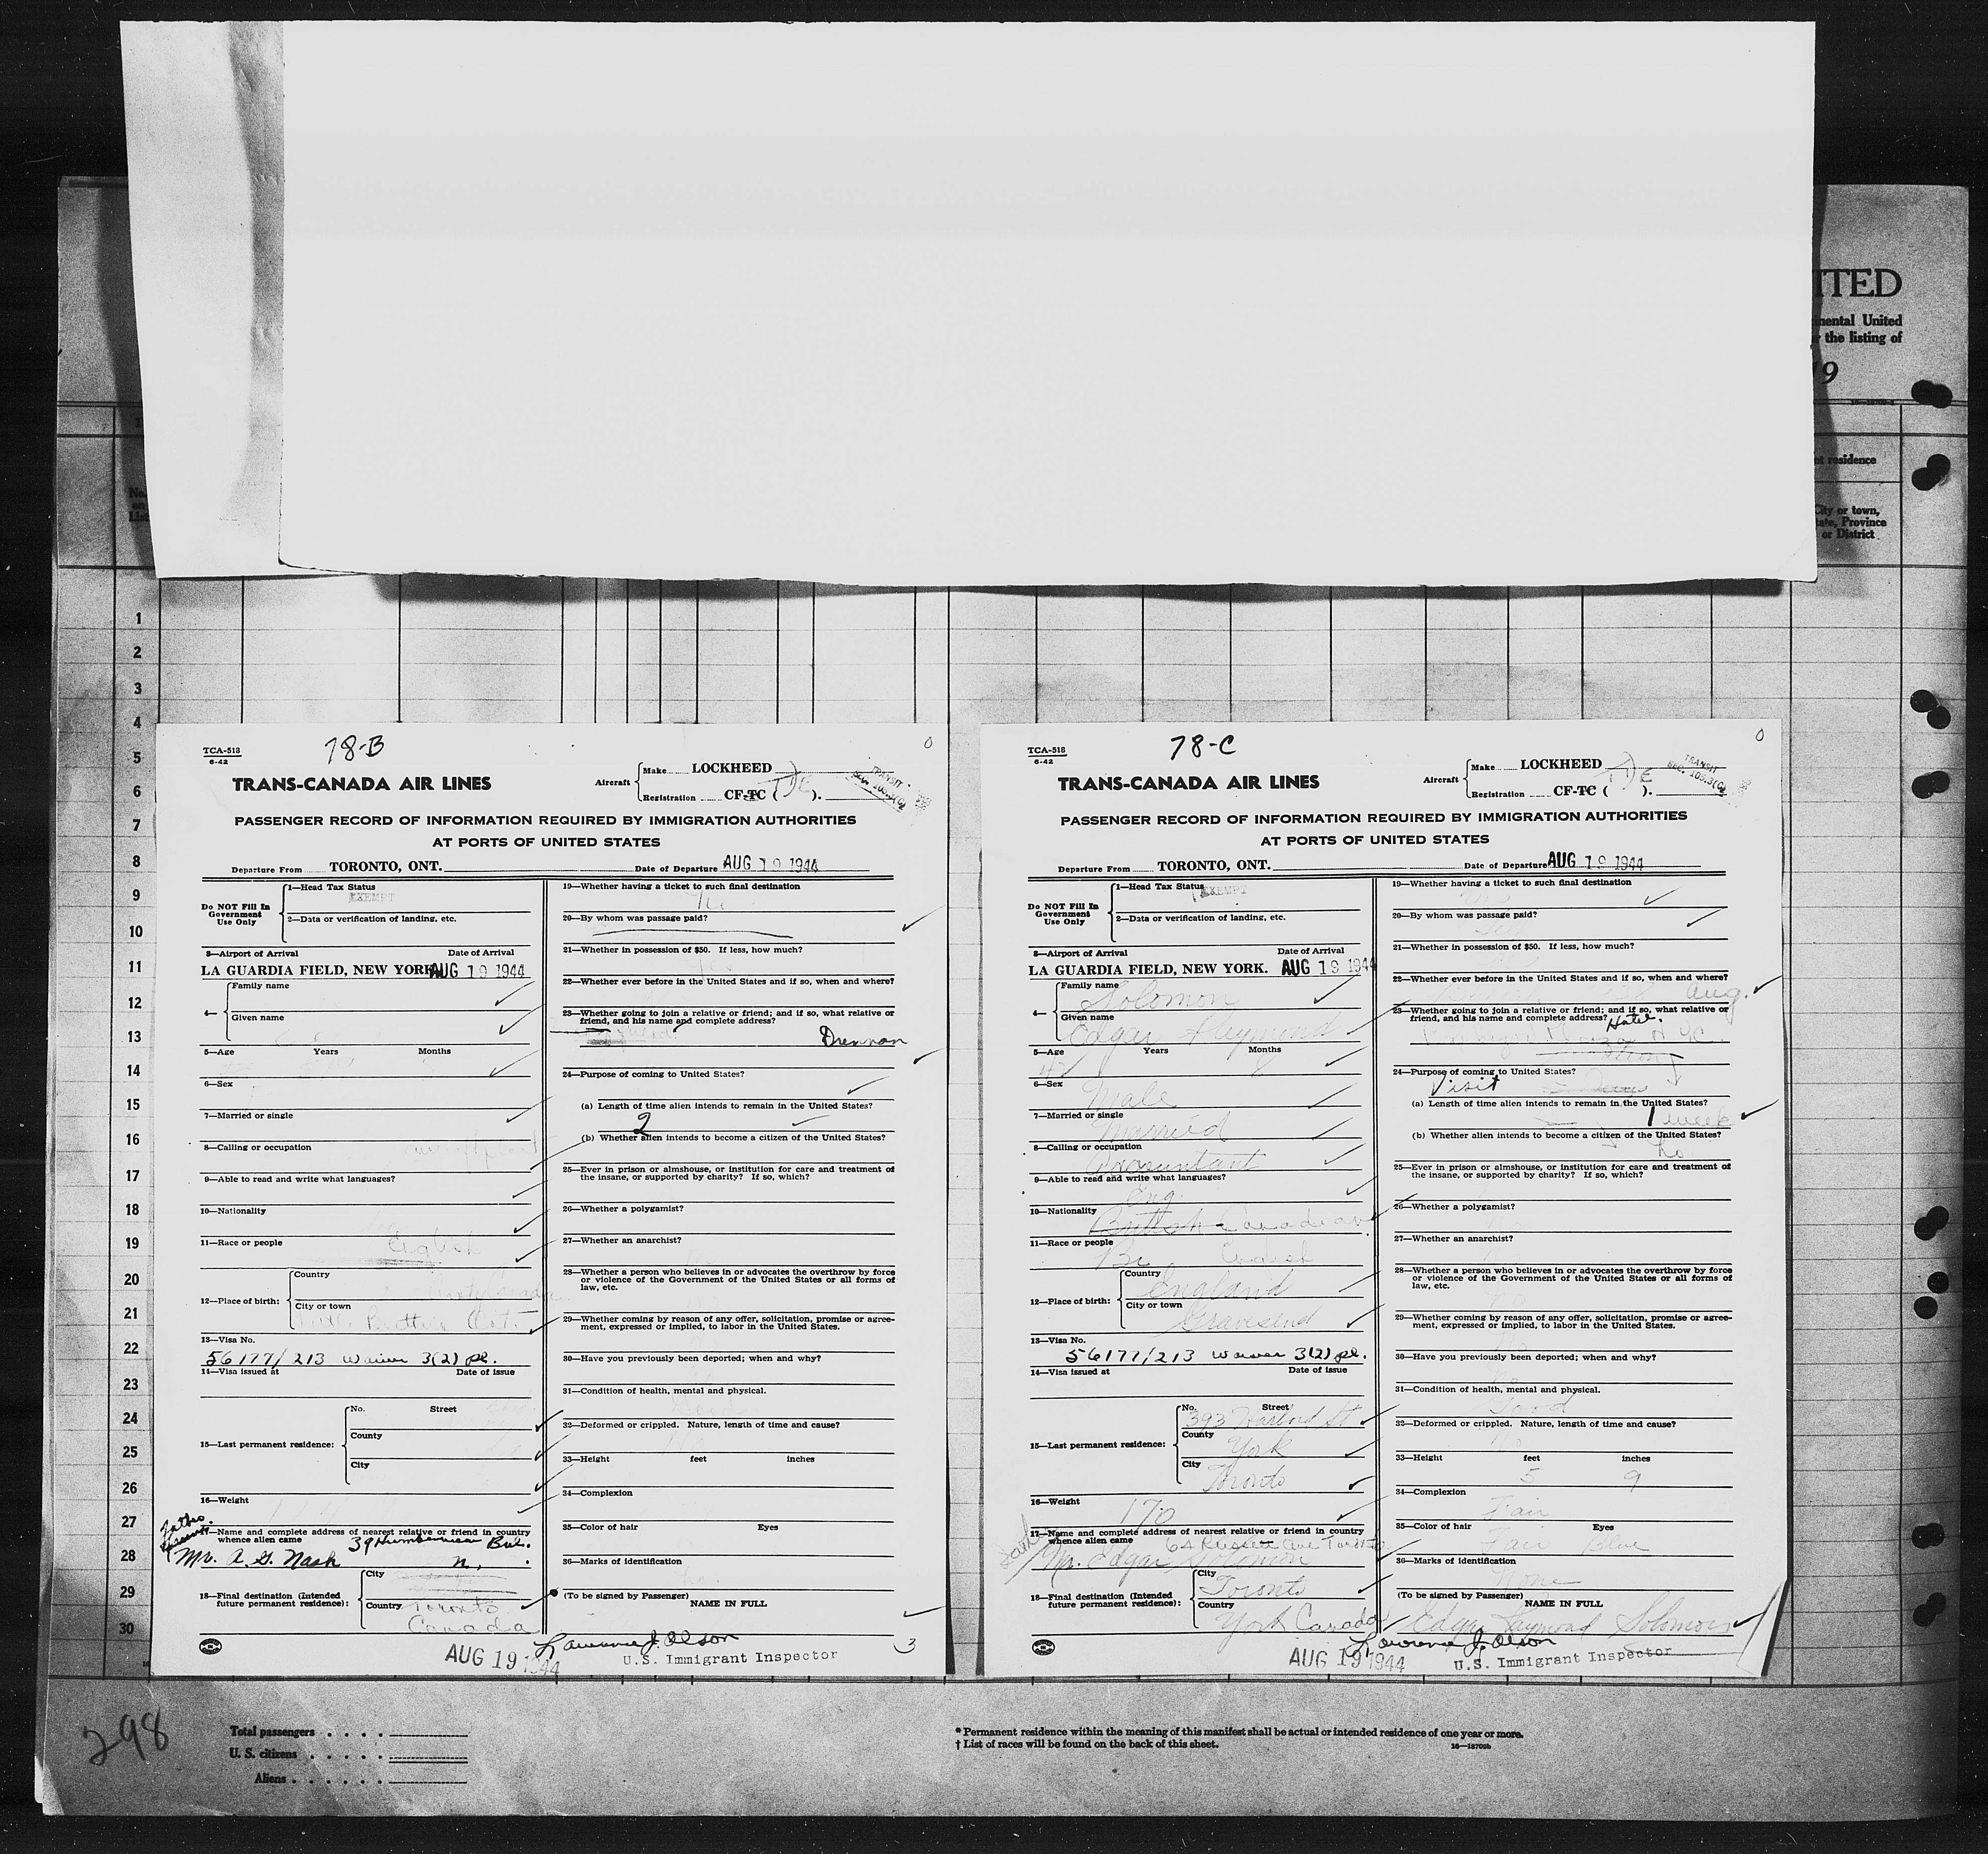 ITED
nental United
r the listing of
19
nt residence
City or town,
ate, Province
or District
1
2
3
4
5
6
7
8
9
10
11
12
13
14
15
16
17
18
19
20
21
22
23
24
25
26
27
28
29
30
TCA-518
6-42
78-B
0
TRANS-CANADA AIR LINES
Aircraft
Make LOCKHEED
Registration CF-TC ( ).
TRANSIT
SEC. 105.3(C)
PASSENGER RECORD OF INFORMATION REQUIRED BY IMMIGRATION AUTHORITIES
AT PORTS OF UNITED STATES
Departure From TORONTO, ONT. Date of Departure AUG 19 1944
Do NOT Fill In
Government
Use Only
1—Head Tax Status
EXEMPT
2—Data or verification of landing, etc.
3—Airport of Arrival Date of Arrival
LA GUARDIA FIELD, NEW YORK. AUG 19 1944
4—
Family name
Given name
5—Age Years Months
6—Sex
7—Married or single
8—Calling or occupation
9—Able to read and write what languages?
10—Nationality
11—Race or people English
12—Place of birth:
Country
City or town
Ont.
13—Visa No.
56177/213 waiver 3(2) pl.
14—Visa issued at Date of issue
15—Last permanent residence:
No. Street
County
City
16—Weight
17—Name and complete address of nearest relative or friend in country
whence alien came 39 Bvl.
Mr. A. G. Nash
18—Final destination (Intended
future permanent residence):
City
Country Toronto
Canada
19—Whether having a ticket to such final destination
20—By whom was passage paid?
21—Whether in possession of $50. If less, how much?
22—Whether ever before in the United States and if so, when and where?
23—Whether going to join a relative or friend; and if so, what relative or
friend, and his name and complete address?
Drennan
24—Purpose of coming to United States?
(a) Length of time alien intends to remain in the United States?
2
(b) Whether alien intends to become a citizen of the United States?
25—Ever in prison or almshouse, or institution for care and treatment of
the insane, or supported by charity? If so, which?
26—Whether a polygamist?
27—Whether an anarchist?
28—Whether a person who believes in or advocates the overthrow by force
or violence of the Government of the United States or all forms of
law, etc.
29—Whether coming by reason of any offer, solicitation, promise or agree-
ment, expressed or implied, to labor in the United States.
30—Have you previously been deported; when and why?
31—Condition of health, mental and physical.
32—Deformed or crippled. Nature, length of time and cause?
33—Height feet inches
34—Complexion
35—Color of hair Eyes
36—Marks of identification
(To be signed by Passenger)
NAME IN FULL
AUG 19 1944
Lawrence J. Olson
U.S. Immigrant Inspector
3
TCA-518
6-42
78-C
0
TRANS-CANADA AIR LINES
Aircraft
Make LOCKHEED
Registration CF-TC ( ).
TRANSIT
SEC. 105.3(C)
PASSENGER RECORD OF INFORMATION REQUIRED BY IMMIGRATION AUTHORITIES
AT PORTS OF UNITED STATES
Departure From TORONTO, ONT. Date of Departure AUG 19 1944
Do NOT Fill In
Government
Use Only
1—Head Tax Status
EXEMPT
2—Data or verification of landing, etc.
3—Airport of Arrival Date of Arrival
LA GUARDIA FIELD, NEW YORK. AUG 19 1944
4—
Family name
Solomon
Given name
Edgar Raymond
5—Age Years Months
6—Sex
Male
7—Married or single
Married
8—Calling or occupation
Accountant
9—Able to read and write what languages?
Eng.
10—Nationality
British - Canadian
11—Race or people
English
12—Place of birth:
Country
England
City or town
Gravesend
13—Visa No.
56177/213 waiver 3(2) pl.
14—Visa issued at Date of issue
15—Last permanent residence:
No. Street
393 Harbord St
County
York
City
Toronto
16—Weight
170
17—Name and complete address of nearest relative or friend in country
whence alien came 64 Russett Ave Toronto
Mr. Edgar Solomon
18—Final destination (Intended
future permanent residence):
City
Toronto
Country
York Canada
19—Whether having a ticket to such final destination
20—By whom was passage paid?
21—Whether in possession of $50. If less, how much?
22—Whether ever before in the United States and if so, when and where?
Aug.
23—Whether going to join a relative or friend; and if so, what relative or
friend, and his name and complete address? Hotel.
24—Purpose of coming to United States?
Visit
(a) Length of time alien intends to remain in the United States?
1 week
(b) Whether alien intends to become a citizen of the United States?
No
25—Ever in prison or almshouse, or institution for care and treatment of
the insane, or supported by charity? If so, which?
26—Whether a polygamist?
27—Whether an anarchist?
28—Whether a person who believes in or advocates the overthrow by force
or violence of the Government of the United States or all forms of
law, etc.
29—Whether coming by reason of any offer, solicitation, promise or agree-
ment, expressed or implied, to labor in the United States.
30—Have you previously been deported; when and why?
31—Condition of health, mental and physical.
Good
32—Deformed or crippled. Nature, length of time and cause?
33—Height feet inches
5 9
34—Complexion
Fair
35—Color of hair Eyes
Fair Blue
36—Marks of identification
None
(To be signed by Passenger)
NAME IN FULL
Edgar Raymond Solomon
AUG 19 1944
Lawrence J. Olson
U.S. Immigrant Inspector
298
Total passengers
U. S. citizens
Aliens
* Permanent residence within the meaning of this manifest shall be actual or intended residence of one year or more.
† List of races will be found on the back of this sheet.